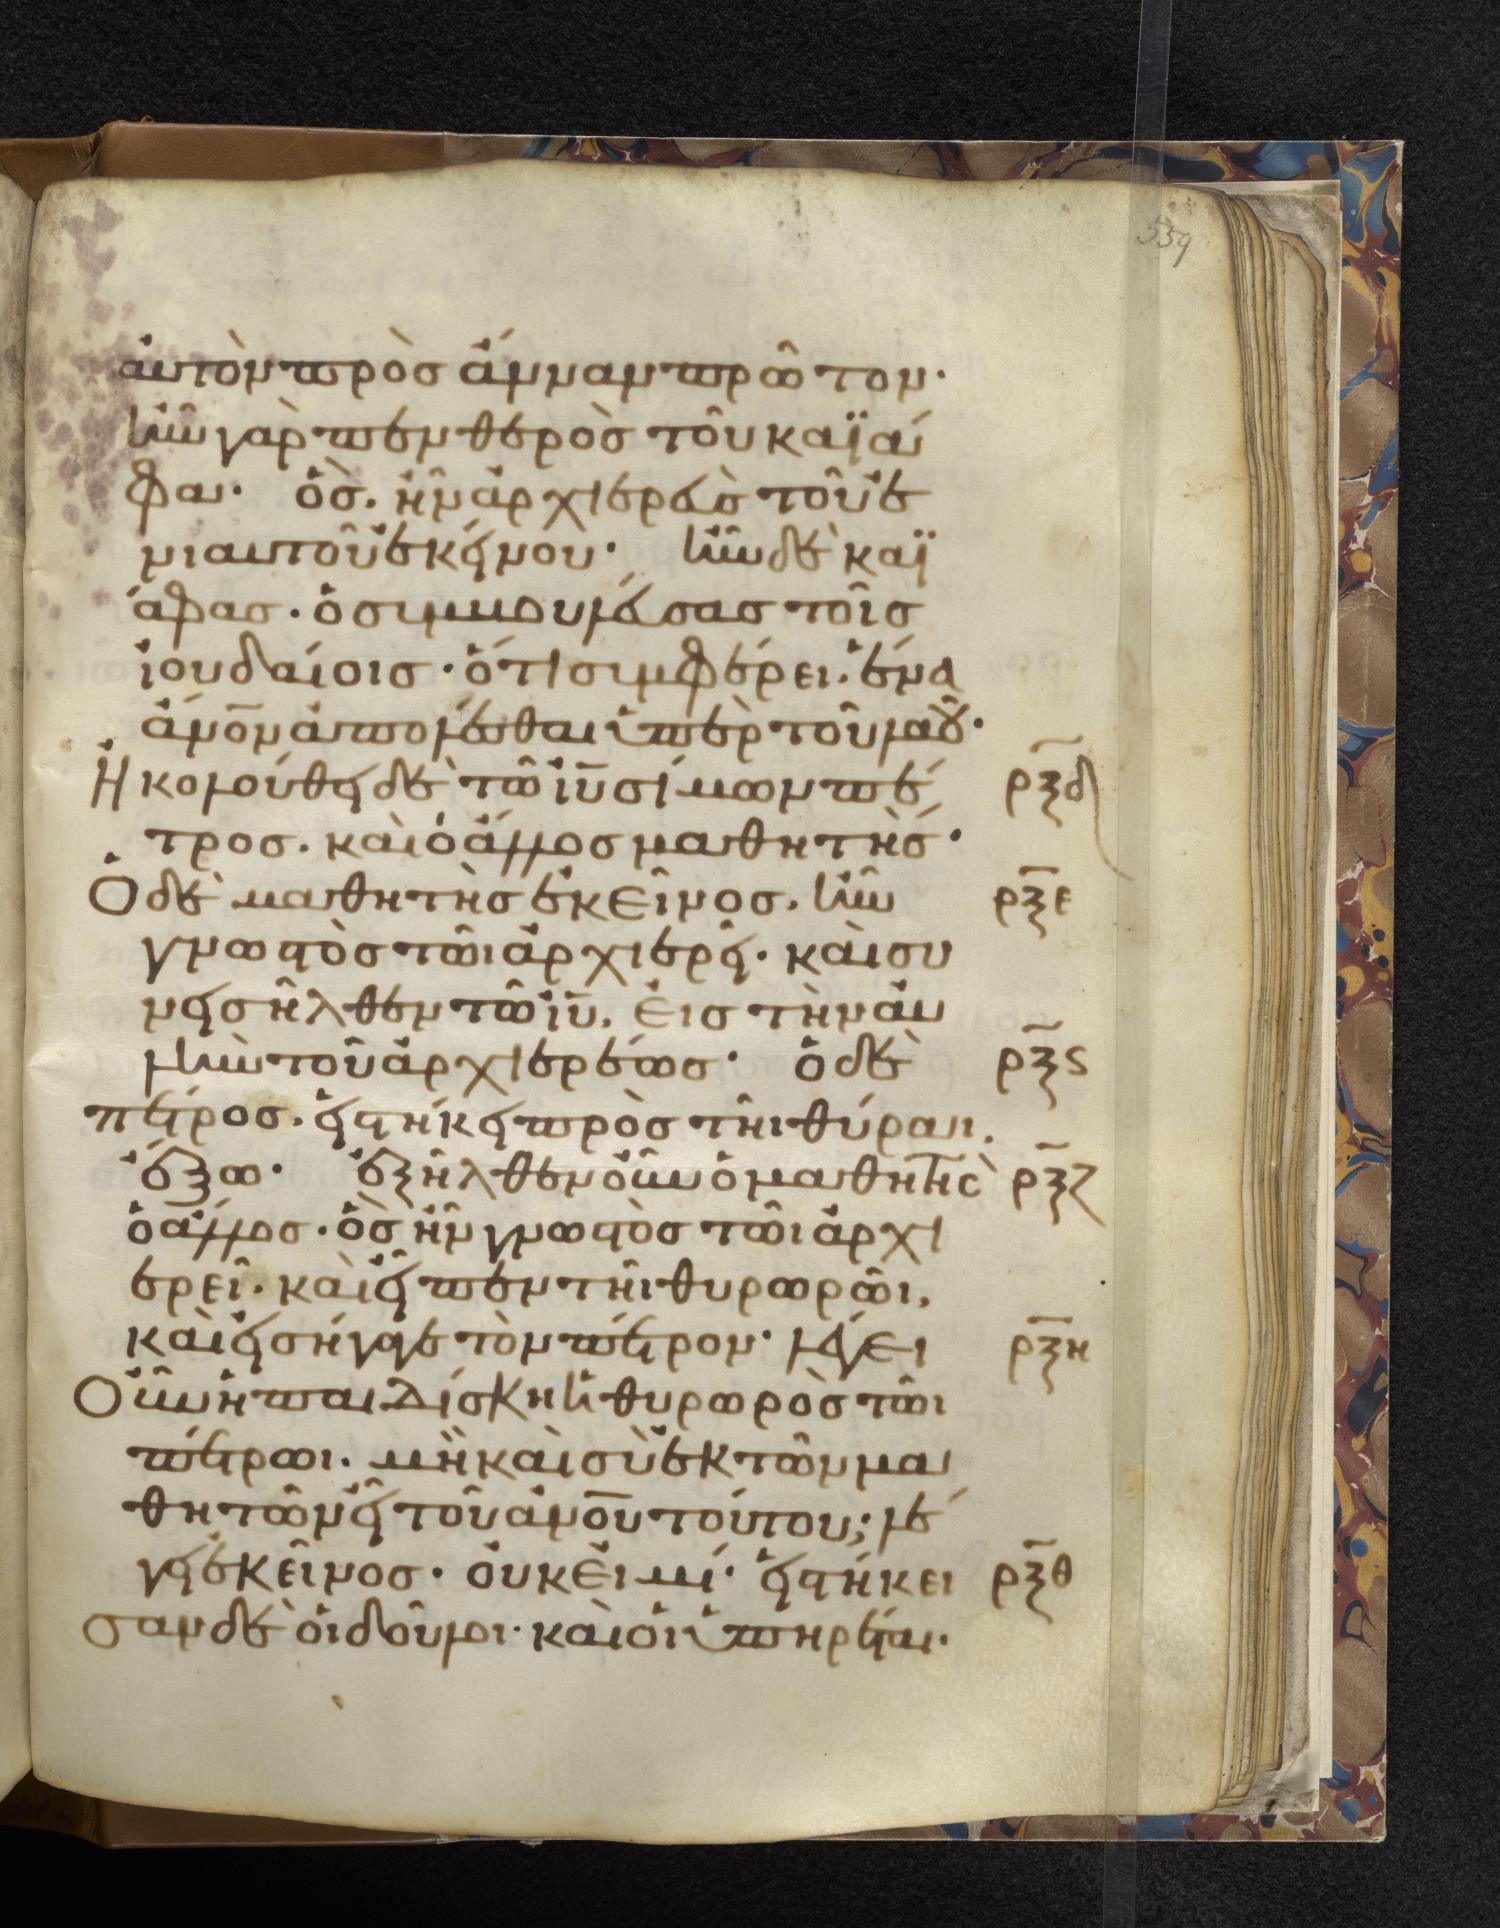 559
ἀυτὸν πρὸσ ἄνναν πρῶτον·
ἦν γὰρ πενθερὸσ τοῦ καϊά
φα· ὃσ. ἦν ἀρχιερεὺσ τοῦ ἐ
νιαυτοῦ ἐκείνου· ἦν δὲ καϊ
άφασ· ὁ συμβουλέυσασ τοῖσ
ἰουδαίοισ· ὅτι συμφέρει. ἕνα
ἀν̅ον ἀπολέσθαι ὑπὲρ τοῦ λαοῦ·
Ἠκολούθει δὲ τῶ ἰ̅υ σίμων πέ
ρξδ
τροσ. καὶ ὁ ἄλλοσ μαθητὴσ·
Ὁ δὲ μαθητὴσ ἐκεῖνοσ. ἦν
ρξε
γνωστὸσ τῶι ἀρχιερεῖ· καὶ συ
νεισῆλθεν τῶ ἰ̅υ. εἰσ τὴν ἀυ
λὴν τοῦ ἀρχιερέωσ· ὁ δὲ
ρξς
πέτροσ. εἱστήκει πρὸσ τῆι θύραι.
ἔξω· ἐξῆλθεν οὖν ὁ μαθητὴσ
ρξζ
ὁ ἄλλοσ· ὃσ ἦν γνωστὸσ τῶι ἀρχι
ερεῖ. καὶ εἶπεν τῆι θυρωρῶι,
καὶ εἰσήγαγε τὸν πέτρον· λέγει
ρξη
Οὖν ἡ παιδίσκη ἡ θυρωρὸσ τῶι
πέτρωι. μὴ καὶ σὺ ἐκ τῶν μα
θητῶν εἶ τοῦ ἀν̅ου τούτου; λέ
γει ἐκεῖνοσ· ὀυκ εἰμί· εἱστήκει
ρξθ
σαν δὲ ὁι δοῦλοι· καὶ ὁι ὑπηρέται·